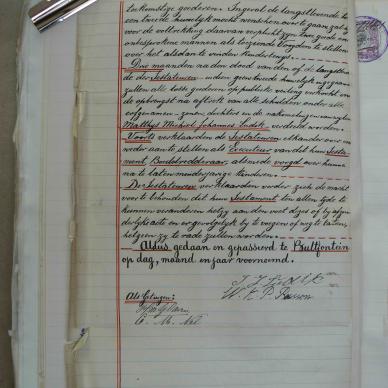 toekomstige goederen. Ingeval de langstlevende tot
een tweede huwelijk mocht wenschen over te gaan zal hij
voor de voltrekking daarvan verplicht zijn twee goede en
onbesproken mannen als toeziende Voogden te stellen
voor het alsdan te vinden kindsdeel.
Drie maanden na den dood van den of de langstlevende
de der Testateuren indien geen tweede huwelijk
zullen alle losse goederen op publieke veiling verkocht en
de opbrengst na aftrek van alle schulden onder alle
erfgenamen - zonen, dochters en de
Matthys Michiel Johannes verdeeld worden.
Voorts verklaarden de Testateuren elkander over en
weder aan te stellen als Executeur van dit hun Testa-
ment, Boedelredderaar, alsmede voogd over hunne
na te laten minderjarige kinderen.
De Testateuren verklaarden verder zich de macht
voor te behouden dit hun Testament ten allen tijde te
kunnen veranderen hetzij aan den voet dezes of bij afzon-
derlijke acte en er gevoegelijk bij te voegen of weg te laten,
hetgeen zij te rade zullen worden.
Aldus gedaan en gepasseerd te Bultfontein
op dag, maand en jaar voornoemd.
Als Getuigen:
G. M. Nel